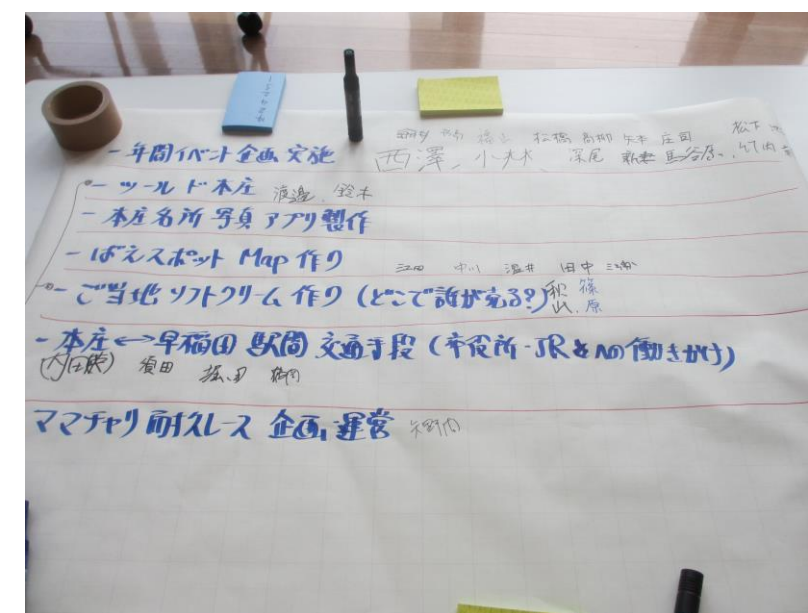 橋本 松橋 高柳 矢本 庄司 松下
- 年間イベント企画 実施 西澤、小林、深尾 馬谷原、竹内
- ツールド本庄 渡邉、鈴木
- 本庄名所 写真 アプリ製作
- ばえスポット Map 作り 江田 中川 温井 田中
- ご当地 ソフトクリーム 作り (どこで誰が売る?) 秋山、篠原
- 本庄⟷早稲田 駅間 交通手段 (市役所・JRとへの働きかけ)
須田 堀田
ママチャリ 耐久レース 企画、運営 矢野内